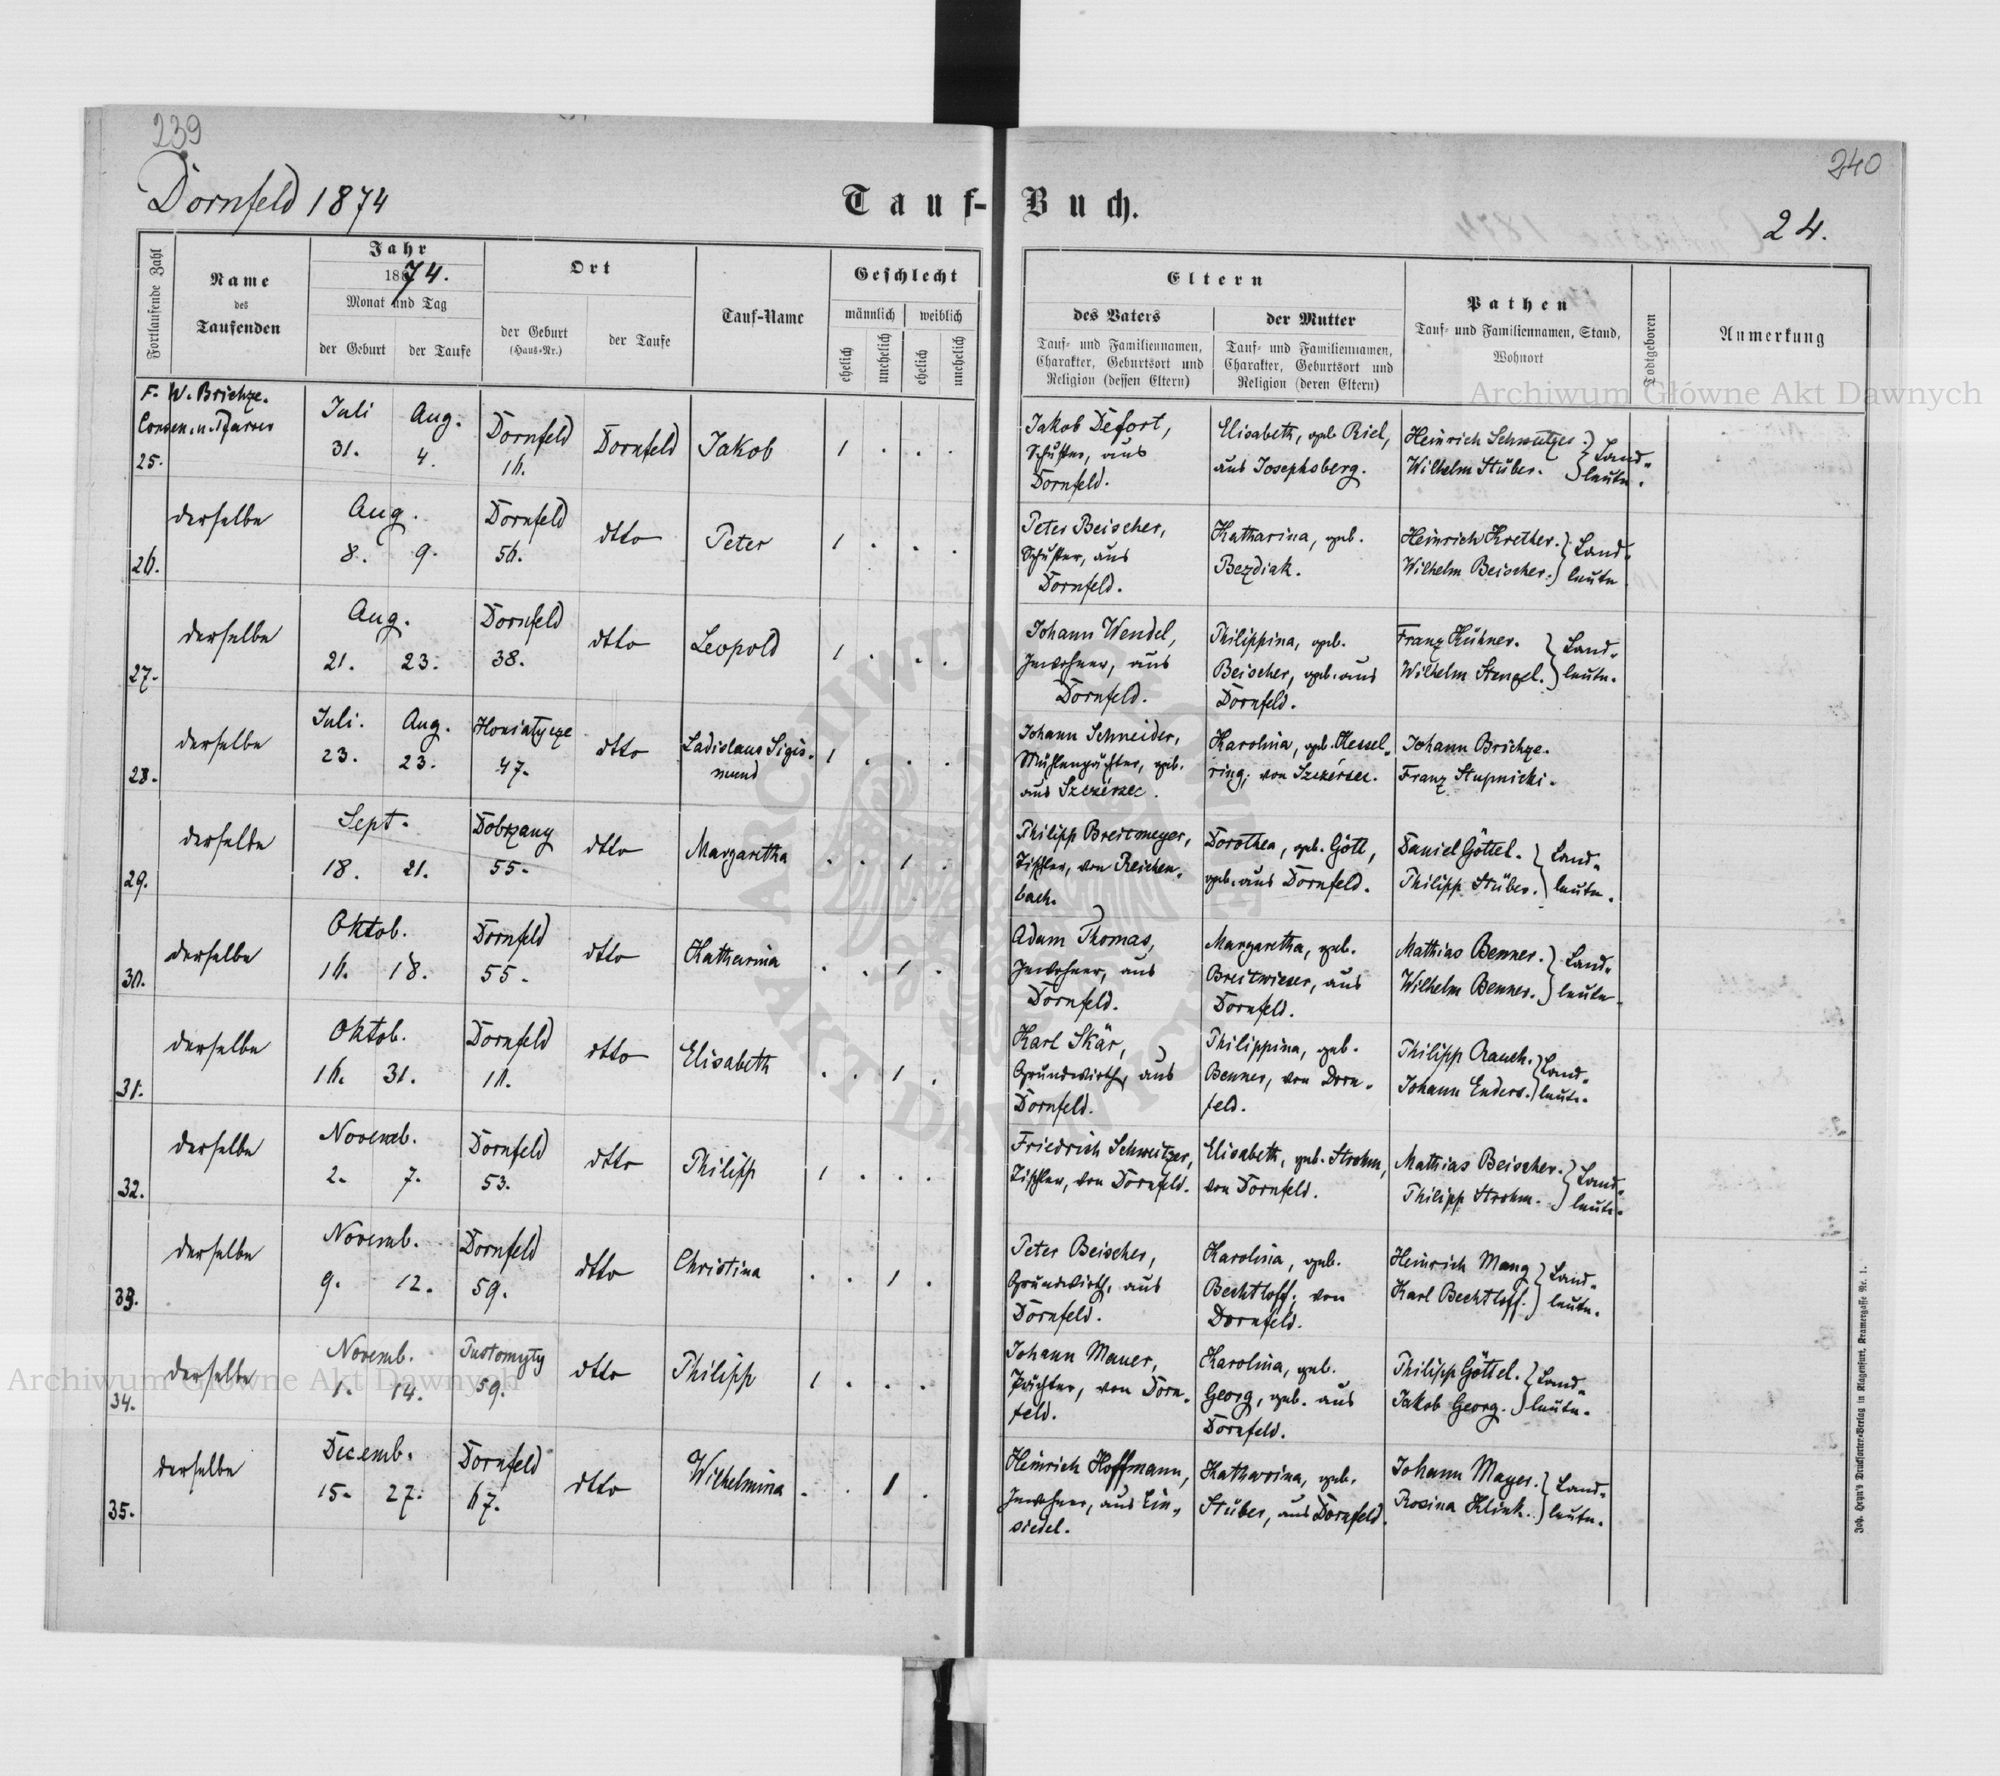 239
240
Dornfeld 1874
Tauf-Buch.
24.
Fortlaufende Zahl
Name
des
Taufenden
Jahr
1874.
Monat und Tag
der Geburt
der Taufe
Ort
der Geburt
(Haus-Nr.)
der Taufe
Tauf-Name
Geschlecht
männlich
weiblich
ehelich
unehelich
ehelich
unehelich
Eltern
des Vaters
Tauf- und Familiennamen,
Charakter, Geburtsort und
Religion (dessen Eltern)
der Mutter
Tauf- und Familiennamen,
Charakter, Geburtsort und
Religion (deren Eltern)
Pathen
Tauf- und Familiennamen, Stand,
Wohnort
Todtgeboren
Anmerkung
Archiwum Główne Akt Dawnych
F. W. Brichze.
25.
Juli Aug.
31. 4.
Dornfeld
16.
Dornfeld
Jakob
1 . . .
Jakob Defort,
Schuster, aus
Dornfeld.
Elisabeth, geb. Riel,
aus Josephsberg.
Heinrich Schweitzer.
Wilhelm Stüber.
Land-
leute.
26.
derselbe
Aug.
8. 9.
Dornfeld
56.
dtto
Peter
1 . . .
Peter Beischer,
Schuster, aus
Dornfeld.
Katharina, geb.
Bezdiak.
Heinrich Krether.
Wilhelm Beischer.
Land-
leute
27.
derselbe
Aug.
21. 23.
Dornfeld
38.
dtto
Leopold
1 . . .
Johann Wendel,
Inwohner, aus
Dornfeld.
Philippina, geb.
Beischer, geb. aus
Dornfeld.
Franz Kühner.
Wilhelm Stengel.
Land-
leute.
28.
derselbe
Juli. Aug.
23. 23.
Honiatycze
47.
dtto
Ladislaus Sigis-
mund
1 . . .
Johann Schneider,
Mühlenpächter, geb.
aus Szczérzec.
Karolina, geb. Kessel-
ring, von Szczérzec.
Johann Brichze.
Franz Stupnicki.
29.
derselbe
Sept.
18. 21.
Dobrzany
55.
dtto
Margaretha
. . 1 .
Philipp Breitmeyer,
Tischler, von Reichen-
bach.
Dorothea, geb. Gött,
geb. aus Dornfeld.
Daniel Göttel.
Philipp Stüber.
Land-
leute.
30.
derselbe
Oktob.
16. 18.
Dornfeld
55.
dtto
Katharina
. . 1 .
Adam Thomas,
Inwohner, aus
Dornfeld.
Margaretha, geb.
Breitwieser, aus
Dornfeld.
Mathias Benner.
Wilhelm Benner.
Land-
leute.
31.
derselbe
Oktob.
16. 31.
Dornfeld
11.
dtto
Elisabeth
. . 1 .
Karl Skär,
Grundwirth, aus
Dornfeld.
Philippina, geb.
Benner, von Dorn-
feld.
Philipp Rauch.
Johann Enders.
Land-
leute.
32.
derselbe
Novemb.
2. 7.
Dornfeld
53.
dtto
Philipp
1 . . .
Friedrich Schweitzer,
Tischler, von Dornfeld.
Elisabeth, geb. Strohm,
von Dornfeld.
Mathias Beischer.
Philipp Strohm.
Land-
leute.
33.
derselbe
Novemb.
9. 12.
Dornfeld
59.
dtto
Christina
. . 1 .
Peter Beischer,
Grundwirth, aus
Dornfeld.
Karolina, geb.
Bechtloff, von
Dornfeld.
Heinrich Mang
Karl Bechtloff.
Land-
leute.
34.
derselbe
Novemb.
1. 14.
Pustomyty
59.
dtto
Philipp
1 . . .
Johann Mauer,
Pächter, von Dorn-
feld.
Karolina, geb.
Georg, geb. aus
Dornfeld.
Philipp Göttel.
Jakob Georg.
Land-
leute.
Archiwum Główne Akt Dawnych
35.
derselbe
Decemb.
15. 27.
Dornfeld
67.
dtto
Wilhelmina
. . 1 .
Heinrich Hoffmann,
Inwohner, aus Ein-
siedel.
Katharina, geb.
Stüber, aus Dornfeld.
Johann Mayer.
Rosina Klink.
Land-
leute.
Joh. Heyn's Drucksorten-Verlag in Klagenfurt, Kramergasse Nr. 1.